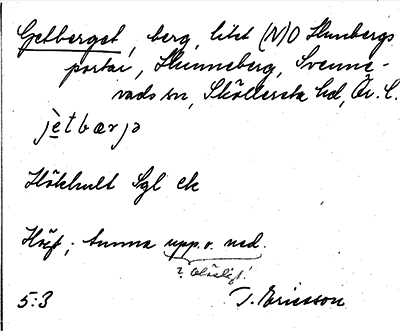 Getberget, berg, litet (N)O Hunbergs
portai, Hinneberg, Svenne-
vads sn, Sköllersta hd, Ör. l.
jètbærjə
Hökhult Sgl ek
Högt; samma upp. o. ned.
? Oläsligt!
5:3
T. Ericsson